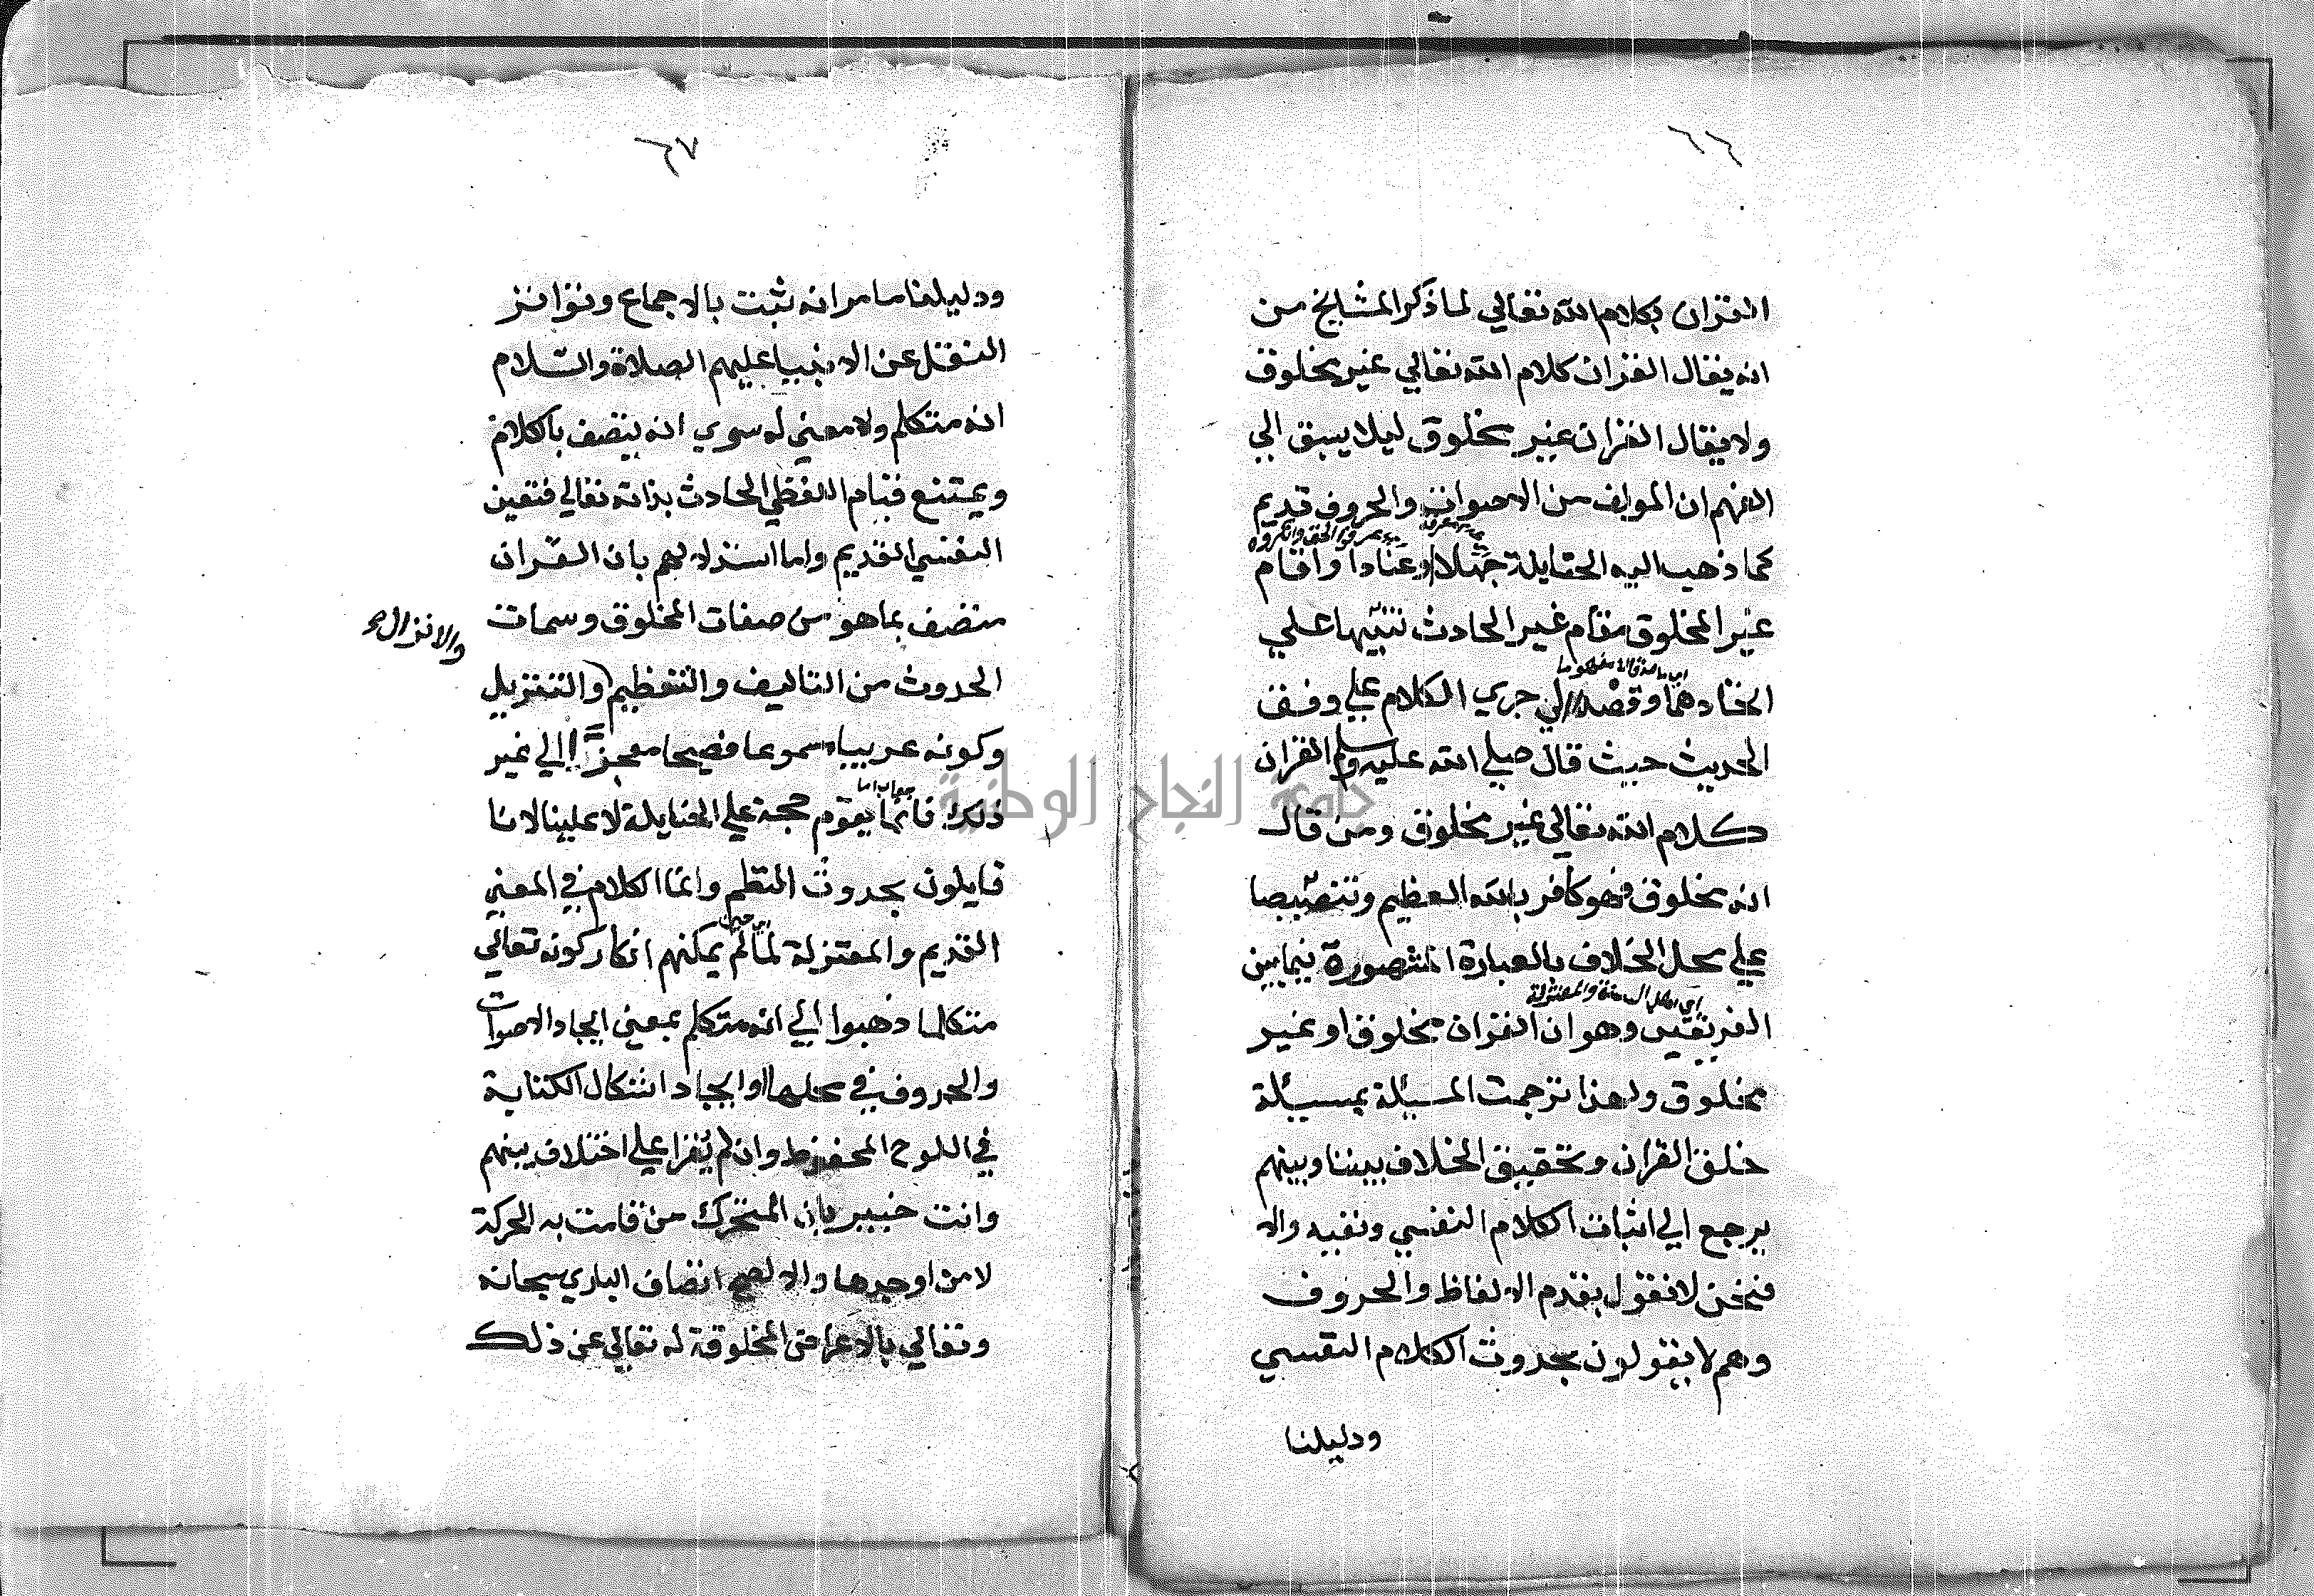 ٦٦
القران بكلام الله تعالي لما ذكر المشايخ من
انه يقال القران كلام الله تعالي غير مخلوق
ولا يقال القران غير مخلوق ليلا يسبق الي
الفهم ان المولف من الاصوات والحروف قديم
كما ذهب اليه الحنابلة جهلا وعنادا واقام
غير المخلوق مقام غير الحادث تنبيها علي
اتحادهما وقصدا الي جري الكلام علي وفق
الحديث حيث قال صلي الله عليه وسلم القران
كلام الله تعالي غير مخلوق ومن قال
انه مخلوق فهو كافر بالله العظيم وتنصيصا
علي محل الخلاف بالعبارة المشهورة فيما بين
اي اهل السنة والمعتزلة
الفريقين وهو ان القران مخلوق او غير
مخلوق ولهذا ترجمت المسيلة بمسيلة
خلق القران وتحقيق الخلاف بيننا وبينهم
يرجع الي اثبات الكلام النفسي ونفيه والا
فنحن لا نقول بقدم الالفاظ والحروف
وهم لا يقولون بحدوث الكلام النفسي
ودليلنا
٦٧
ودليلنا ما مر انه ثبت بالاجماع وتواتر
النقل عن الانبيا عليهم الصلاة والسلام
انه متكلم ولا معني له سوي انه يتصف بالكلام
ويمتنع قيام اللفظي الحادث بذاته تعالي فتعين
النفسي القديم واما استدلالهم بان القران
متصف بما هو من صفات المخلوق وسمات
الحدوث من التاليف والتنظيم والتنزيل
والانزال صح
وكونه عربيا مسموعا فصيحا معجزا الي غير
جواب اما
ذلك فانما يقوم حجة علي الحنابلة لا علينا لانا
قايلون بحدوث النظم وانما الكلام في المعني
اي حين
القديم والمعتزلة لما لم يمكنهم انكار كونه تعالي
متكلما ذهبوا الي انه متكلم بمعني ايجاد الاصوات
والحروف في محلها او ايجاد اشكال الكتابة
في اللوح المحفوظ وان لم يقرا علي اختلاف بينهم
وانت خبير بان المتحرك من قامت به الحركة
لا من اوجدها والا لصح اتصاف الباري سبحانه
وتعالي بالاعراض المخلوقة له تعالي عن ذلك
جامعة النجاح الوطنية